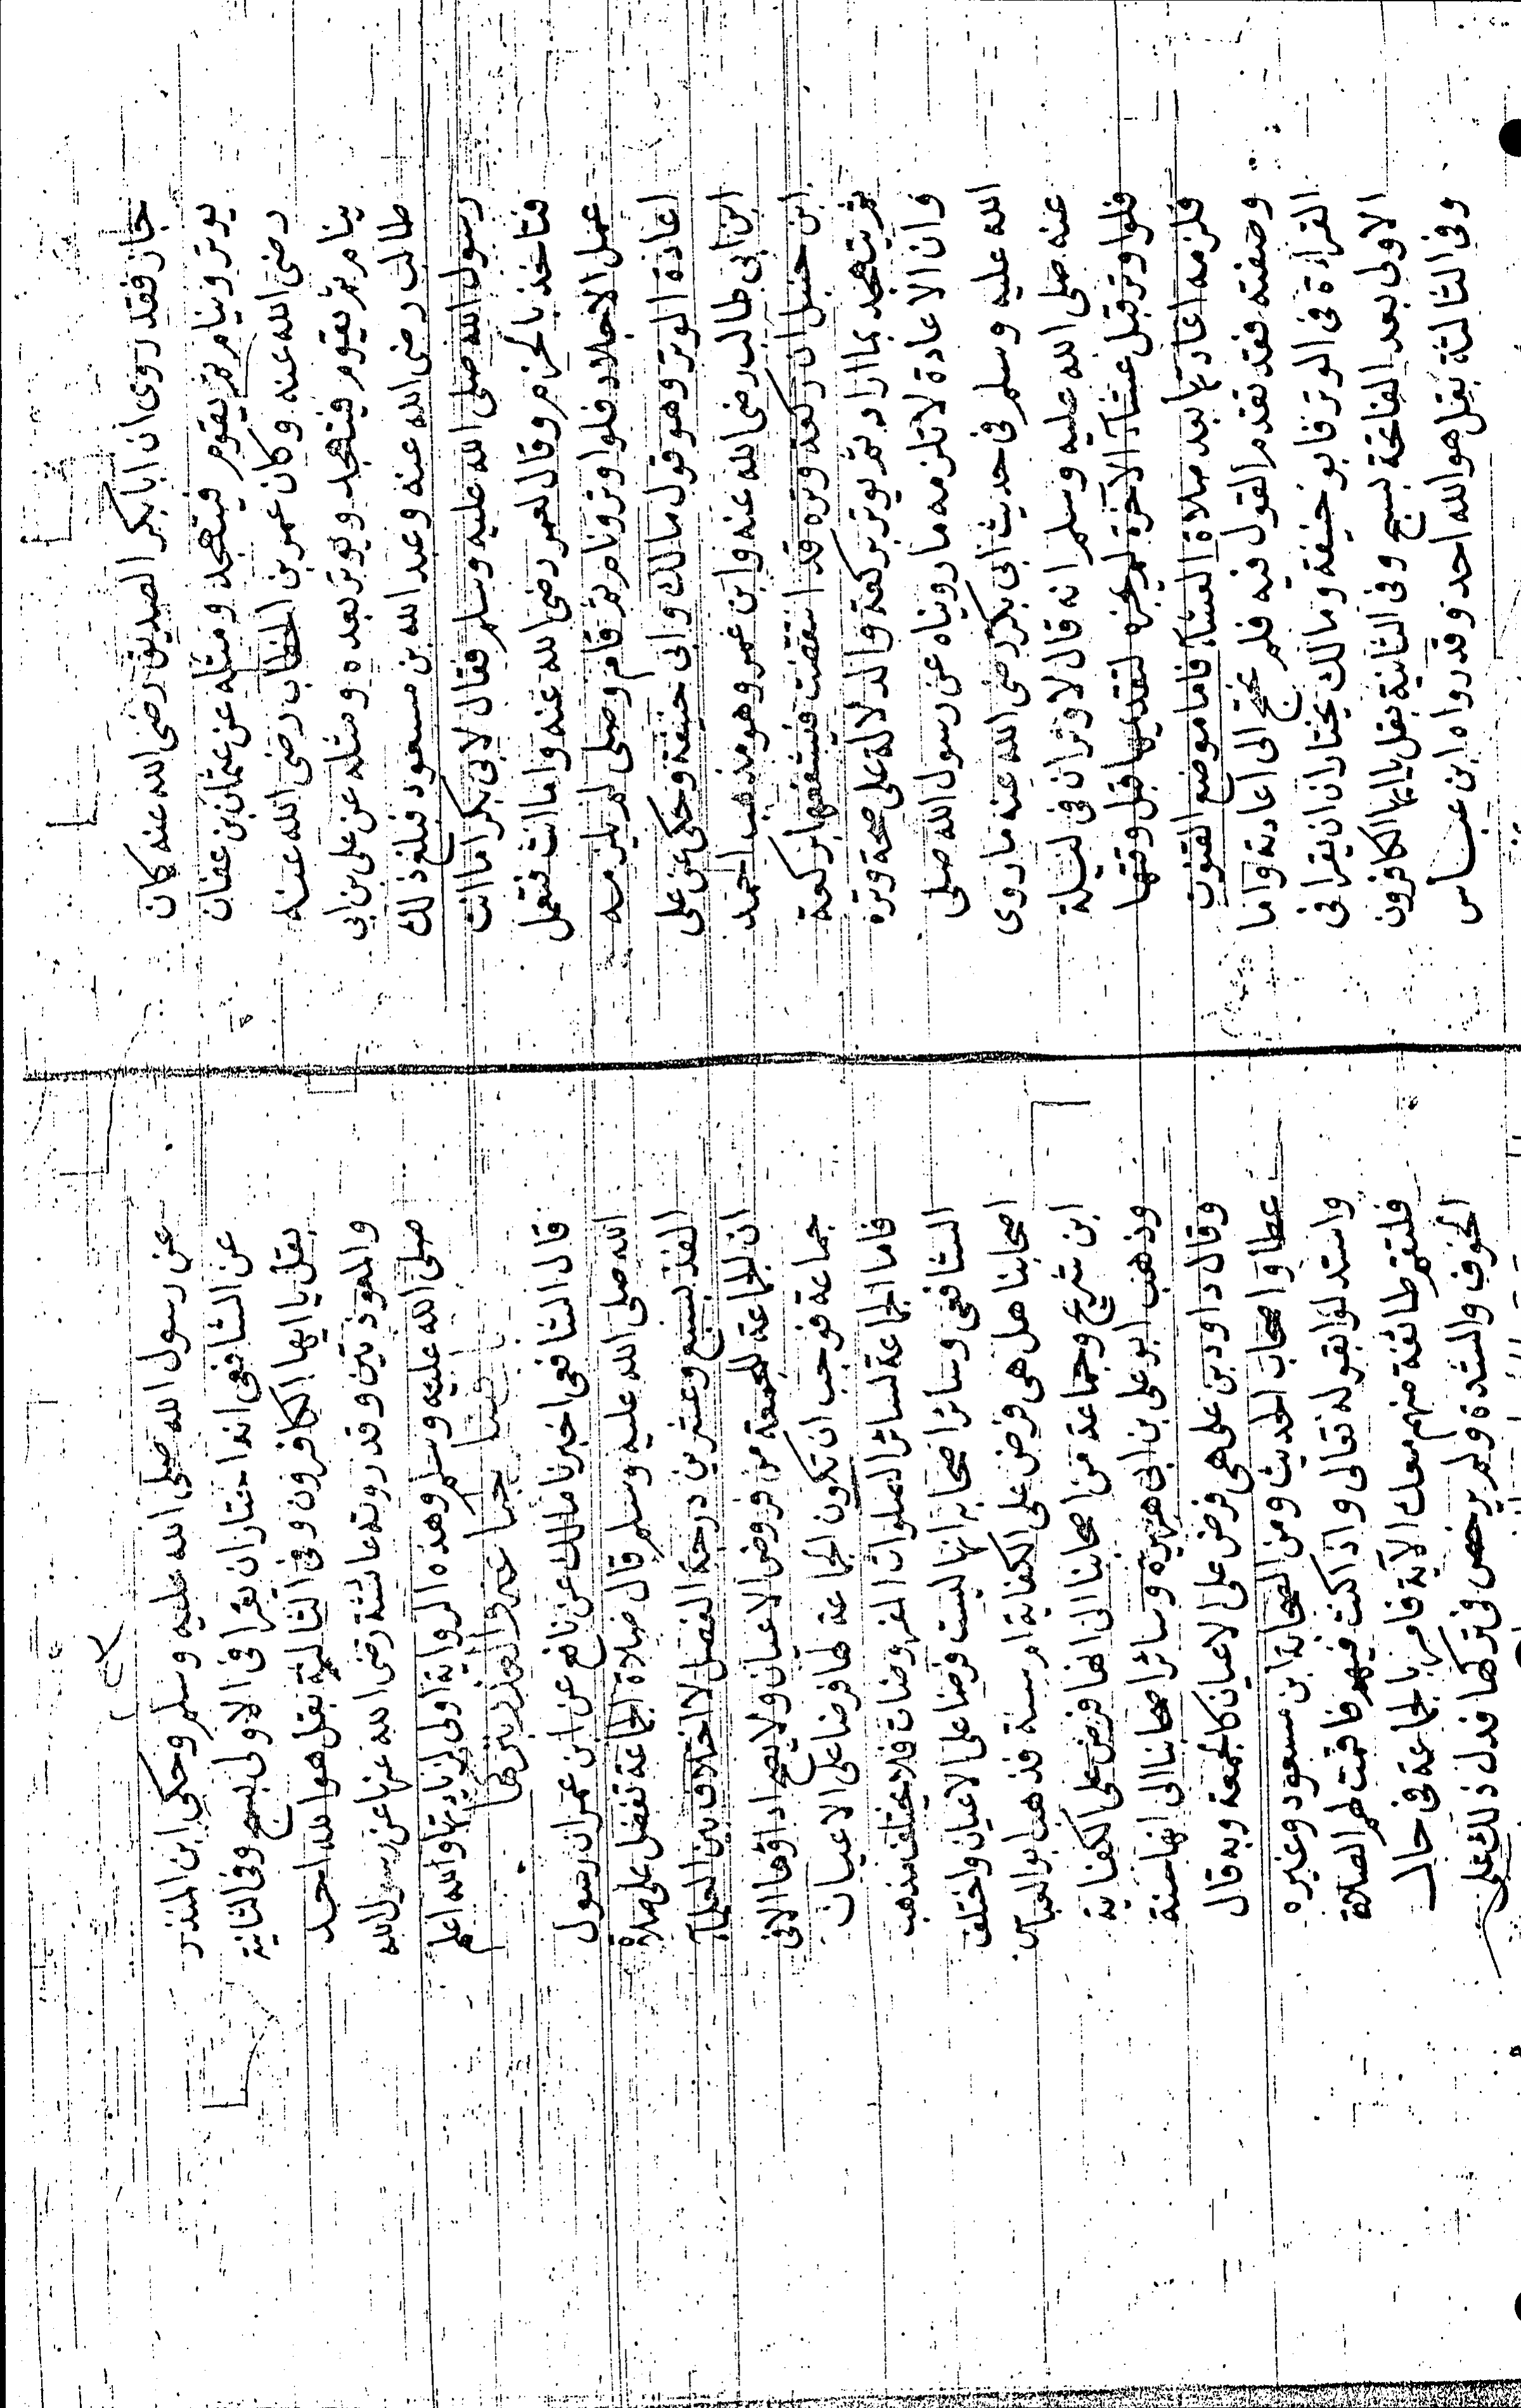 جاز فقد روى ان ابا بكر الصديق رضى الله عنه كان
يوتر وينام ثم يقوم فيتهجد ومثله عن عثمان بن عفان
رضى الله عنه وكان عمر بن الخطاب رضى الله عنه
ينام ثم يقوم فيتهجد ويوتر بعده ومثله عن على بن ابى
طالب رضى الله عنه وعبد الله بن مسعود فبلغ ذلك
رسول الله صلى الله عليه وسلم فقال لابى بكر اما انت
فتاخذ بالحزم وقال لعمر رضى الله عنه واما انت فتعمل
عمل الاجلاد فلو اوتر ونام ثم قام وصلى لم يلزمه
اعادة الوتر وهو قول مالك وابى حنيفة وحكى عن على
ابن ابى طالب رضى الله عنه وابن عمر وهو مذهب احمد
ابن حنبل ان ركعة وتره قد انتقضت فيشفعها بركعة
ثم يتهجد بما اراد ثم يوتر بركعة والدلالة على صحة وتره
وان الاعادة لا تلزمه ما رويناه عن رسول الله صلى
الله عليه وسلم فى حديث ابى بكر رضى الله عنه ما روى
عنه صلى الله عليه وسلم انه قال لا وتران فى ليلة
فلو اوتر قبل عشاء الآخرة لم يجزه لتقديمها قبل وقتها
فلزمه اعادتها بعد صلاة العشاء فاما موضع القنوت
وصفته فقد تقدم القول فيه فلم يحتج الى اعادته واما
القراءة فى الوتر فابو حنيفة ومالك يختاران ان يقرا فى
الاولى بعد الفاتحة بسبح وفى الثانية بقل يا ايها الكافرون
وفى الثالثة بقل هو الله احد وقد رواه ابن عباس
عن رسول الله صلى الله عليه وسلم وحكى ابن المنذر
عن الشافعى انه اختار ان يقرا فى الاولى بسبح وفى الثانية
بقل يا ايها الكافرون وفى الثالثة بقل هو الله احد
والمعوذتين وقد روته عائشة رضى الله عنها عن رسول الله
صلى الله عليه وسلم وهذه الرواية اولى لزيادتها والله اعلم
جماعة والعذر بتركها
قال الشافعى اخبرنا مالك عن نافع عن ابن عمر ان رسول
الله صلى الله عليه وسلم قال صلاة الجماعة تفضل على صلاة
الفذ بسبع وعشرين درجة الفصل لا اختلاف بين العلماء
ان الجماعة للجمعة من فروض الاعيان ولا يصح اداؤها الا فى
جماعة فوجب ان تكون الجماعة لها فرضا على الاعيان
فاما الجماعة لسائر الصلوات المفروضات فلا يختلف مذهب
الشافعى وسائر اصحابه انها ليست فرضا على الاعيان واختلف
اصحابنا هل هى فرض على الكفاية ام سنة فذهب ابو العباس
ابن شريح وجماعة من اصحابنا الى انها فرض على الكفاية
وذهب ابو على بن ابى هريرة وسائر اصحابنا الى انها سنة
وقال داود بن على هى فرض على الاعيان كالجمعة وبه قال
عطا واصحاب الحديث ومن الصحابة ابن مسعود وغيره
واستدلوا بقوله تعالى واذا كنت فيهم فاقمت لهم الصلاة
فلتقم طائفة منهم معك الآية فامر بالجماعة فى حال
الخوف والشدة ولم يرخص فى تركها فدل ذلك على